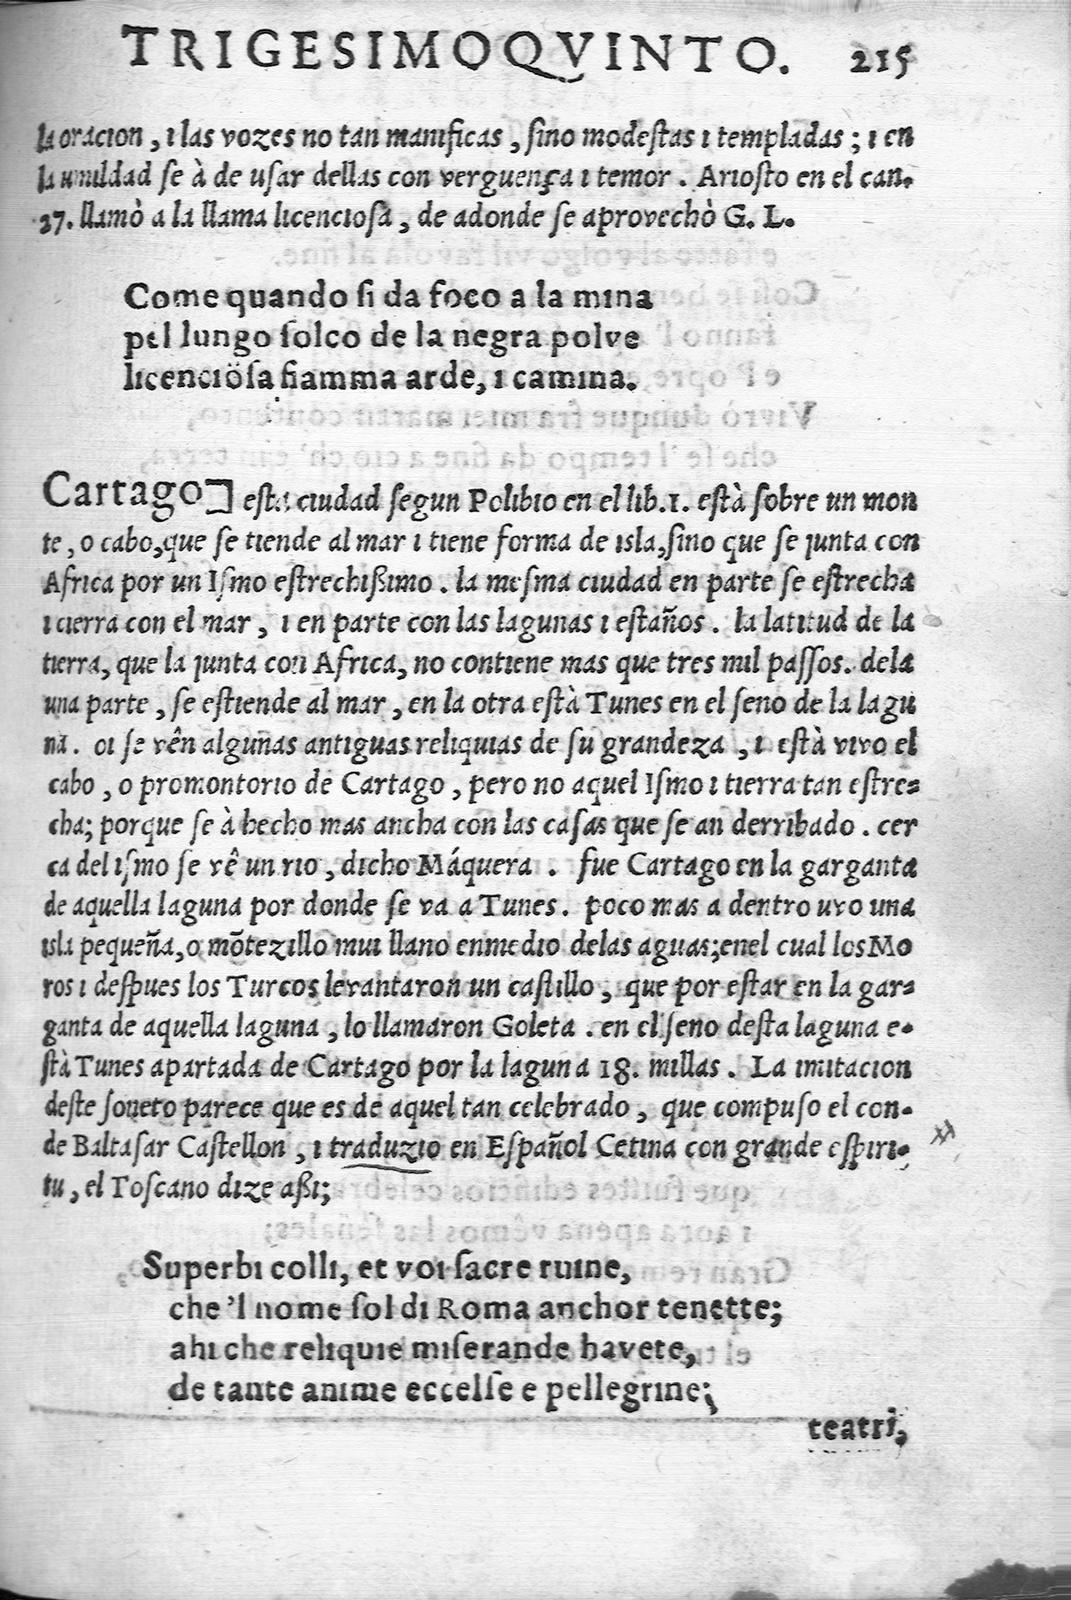 TRIGESIMOQVINTO. 215
la oracion, i las vozes no tan manificas, sino modestas i templadas; i en
la umildad se à de usar dellas con verguença i temor. Ariosto en el can.
27. llamò a la llama licenciosa, de adonde se aprovechò G. L.
Come quando si da foco a la mina
pel lungo solco de la negra polve
licenciösa fiamma arde, i camina.
Cartago] esta ciudad segun Polibio en el lib.1. està sobre un mon
te, o cabo, que se tiende al mar i tiene forma de isla, sino que se junta con
Africa por un Ismo estrechissimo. la mesma ciudad en parte se estrecha
i cierra con el mar, i en parte con las lagunas i estaños. la latitud de la
tierra, que la junta con Africa, no contiene mas que tres mil passos. dela
una parte, se estiende al mar, en la otra està Tunes en el seno de la lagu
na. oi se vên algunas antiguas reliquias de su grandeza, i està vivo el
cabo, o promontorio de Cartago, pero no aquel Ismo i tierra tan estre-
cha; porque se à hecho mas ancha con las casas que se an derribado. cer
ca del ismo se vê un rio, dicho Máquera. fue Cartago en la garganta
de aquella laguna por donde se va a Tunes. poco mas a dentro uvo una
isla pequeña, o mõtezillo mui llano enmedio delas aguas; enel cual los Mo
ros i despues los Turcos levantaron un castillo, que por estar en la gar-
ganta de aquella laguna, lo llamaron Goleta. en el seno desta laguna e-
stà Tunes apartada de Cartago por la laguna 18. millas. La imitacion
deste soneto parece que es de aquel tan celebrado, que compuso el con-
de Baltasar Castellon, i traduzio en Español Cetina con grande espiri-
tu, el Toscano dize assi;
Superbi colli, et voi sacre ruine,
che 'l nome sol di Roma anchor tenette;
ahi che reliquie miserande havete,
de tante anime eccelse e pellegrine;
teatri,